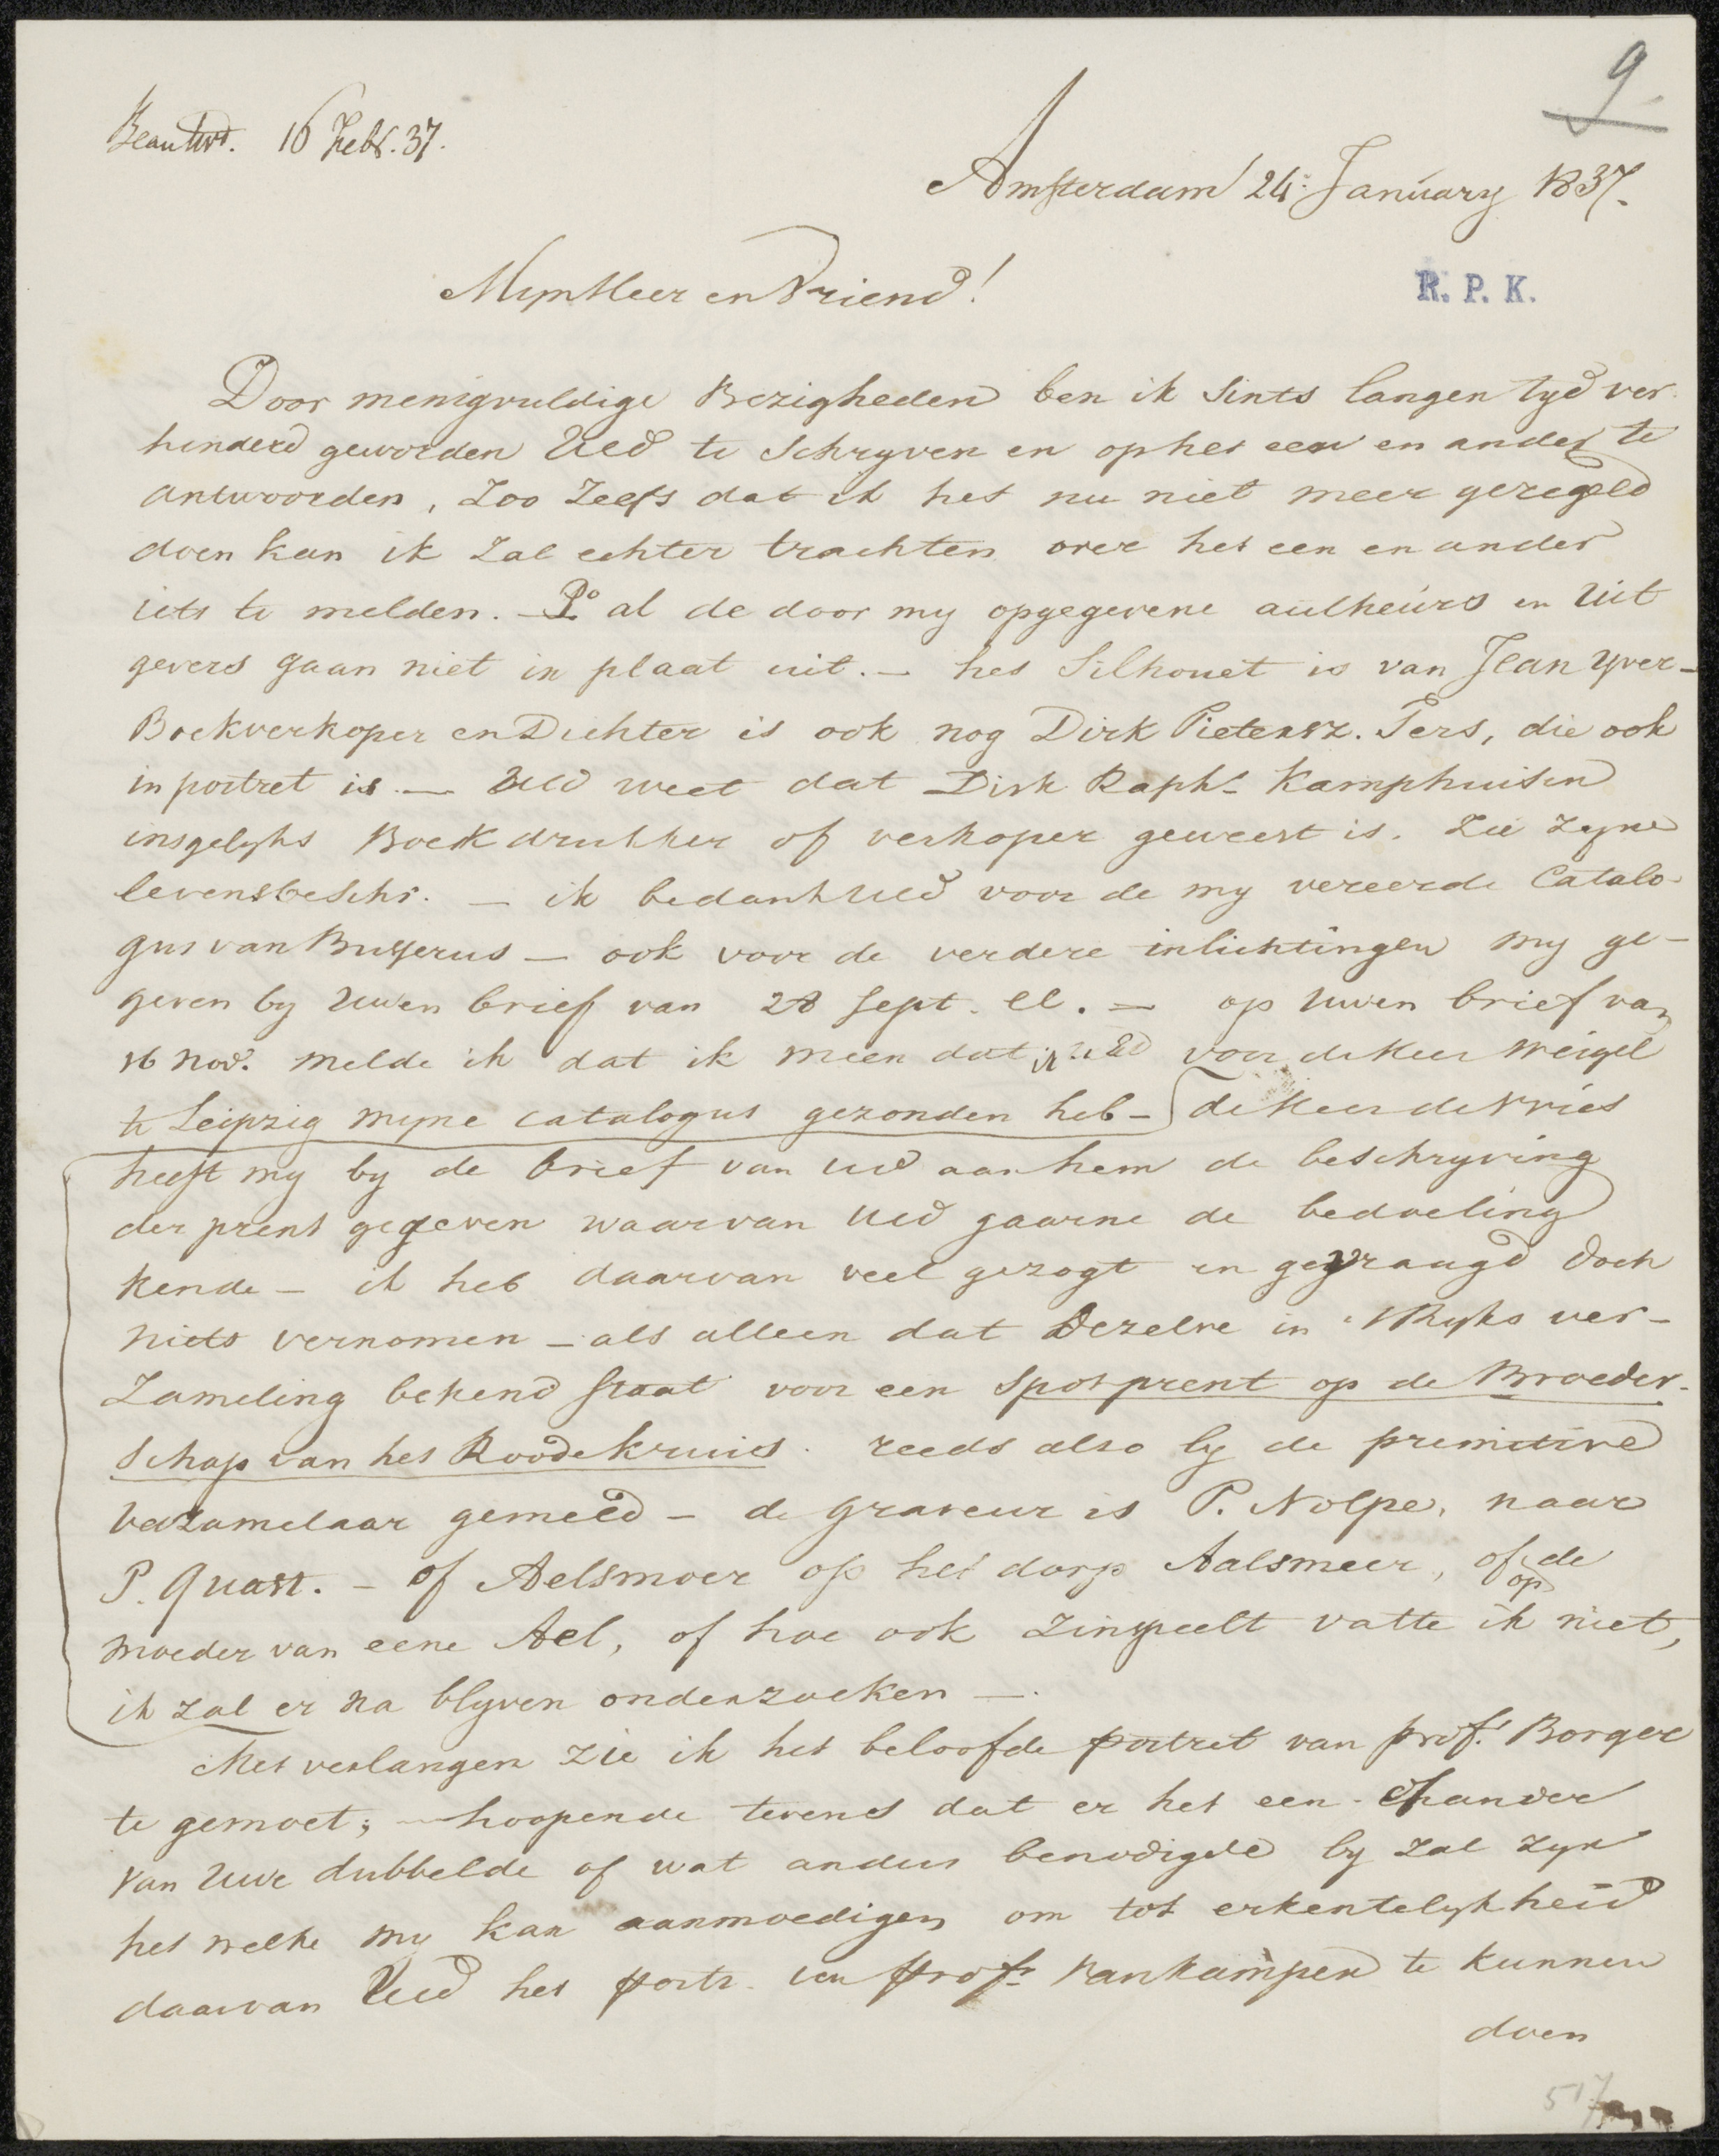 9
Beantwd. 16 Febr. 37.
Amsterdam 24. January 1837.
R. P. K.
MynHeer en Vriend!
Door menigvuldige Bezigheden ben ik sints langen tyd ver
hinderd geworden UEd te schryven en op het een en ander te
antwoorden, zoo zelfs dat ik het nu niet meer geregeld
doen kan ik zal echter trachten over het een en ander
iets te melden. — 1º al de door my opgegevene autheurs en Uit
gevers gaan niet in plaat uit. — het Silhouet is van Jean Yver —
Boekverkoper en Dichter is ook nog Dirk Pietersz. Pers, die ook
in portret is. — UEd weet dat Dirk Raphs Kamphuisen
insgelyks Boekdrukker of verkoper geweest is. Zie zyne
levensbeschr. — ik bedank UEd voor de my vereerde Catalo-
gus van Busserus — ook voor de verdere inlichtingen my ge-
geven by Uwen brief van 28 Sept. ll. — op Uwen brief van
16 Nov. melde ik dat ik meen dat ik UEd voor de Heer Weigel
te Leipzig myne catalogus gezonden heb — de Heer de Vries
heeft my by de brief van UEd aan hem de beschryving
der prent gegeven waarvan UEd gaarne de bedoeling
kende — ik heb daarvan veel gezogt en gevraagd doch
niets vernomen — als alleen dat dezelve in 's Ryks ver-
zameling bekend staat voor een spotprent op de Broeder-
schap van het Roode kruis. reeds also by de primitive
verzamelaar gemeld — de graveur is P. Nolpe, naar
P. Quast. — of Aelsmoer op het dorp Aalsmeer, of op de
moeder van eene Ael, of hoe ook zinspeelt vatte ik niet,
ik zal er na blyven onderzoeken —.
Met verlangen zie ik het beloofde portret van prof. Borger
te gemoet; — hoopende tevens dat er het een of ander
van Uwe dubbelde of wat anders benodigde by zal zyn
het welke my kan aanmoedigen om tot erkentelykheid
daarvan UEd het portr. van Profr. van Kampen te kunnen
doen
517